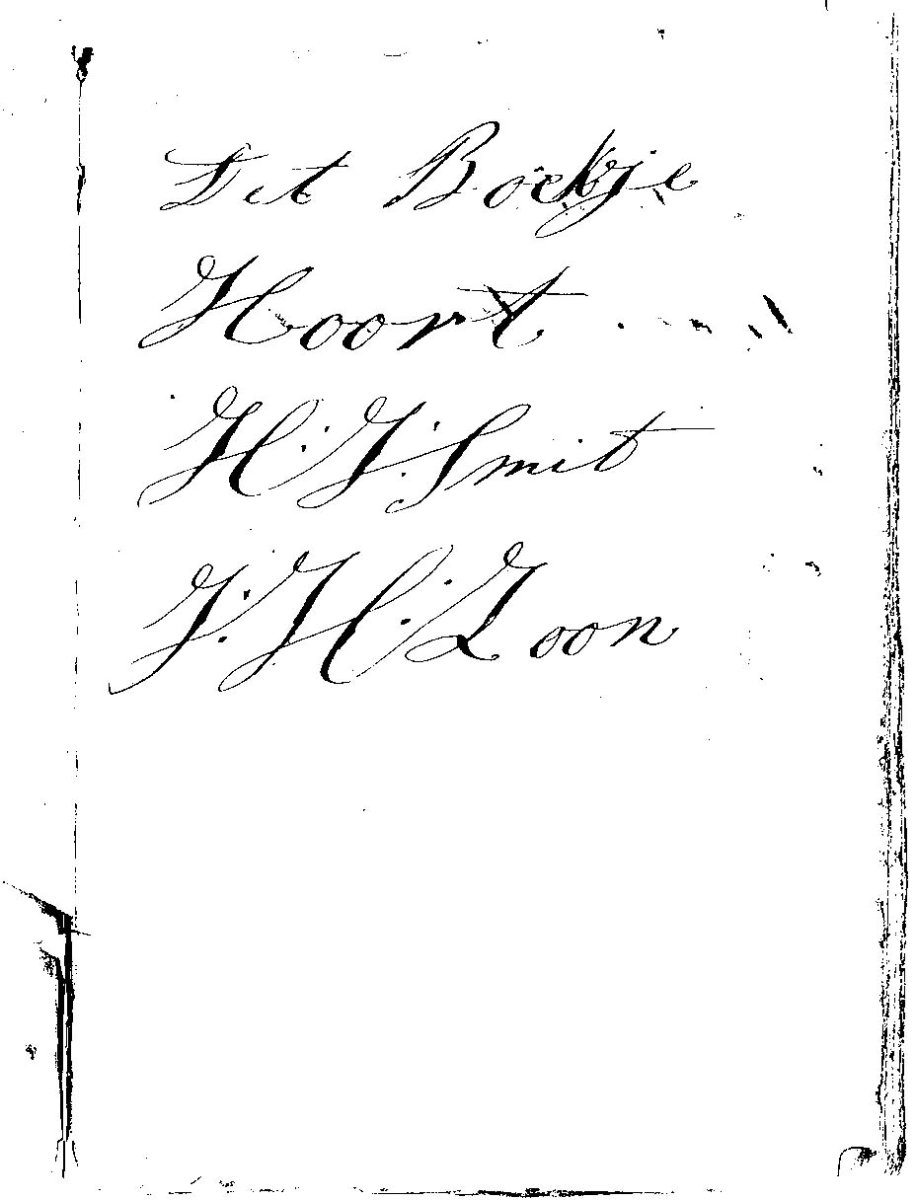 Dit Boekje
Hoort
H: J: Smit
J: H: Zoon